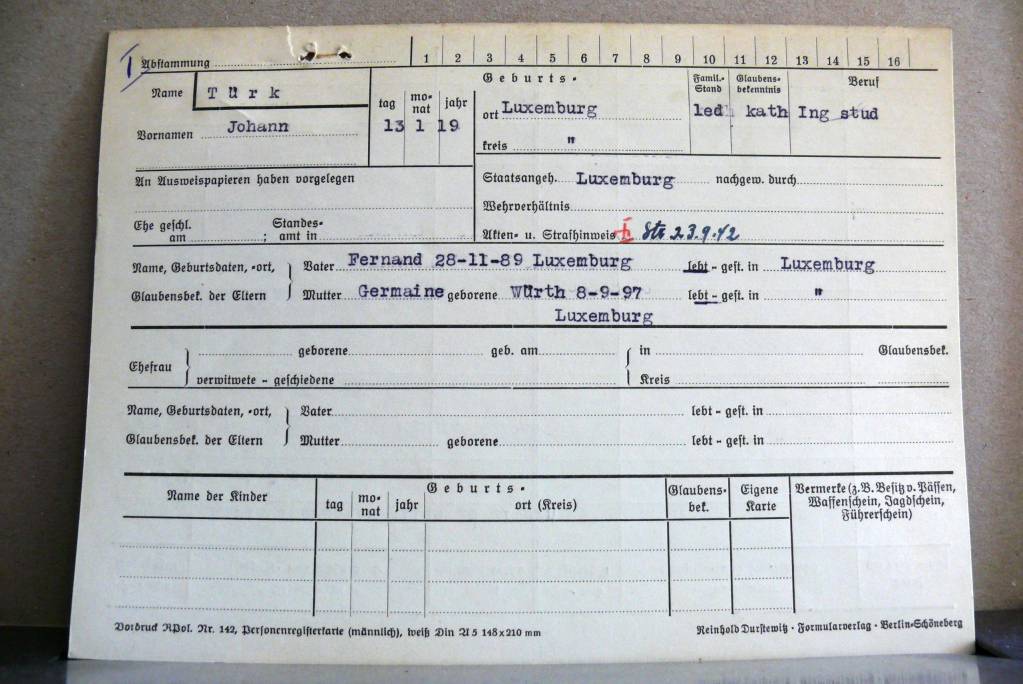 I Abstammung 1 2 3 4 5 6 7 8 9 10 11 12 13 14 15 16
Name Türk
Vornamen Johann
Geburts-
tag monat jahr
13 1 19
ort Luxemburg
kreis "
Famil.-Stand
led
Glaubens-bekenntnis
kath
Beruf
Ing stud
An Ausweispapieren haben vorgelegen
Ehe geschl. am ; Standes-amt in
Staatsangeh. Luxemburg nachgew. durch
Wehrverhältnis
Akten- u. Strafhinweis Str 23.9.42
Name, Geburtsdaten, -ort, Vater Fernand 28-11-89 Luxemburg lebt - gest. in Luxemburg
Glaubensbek. der Eltern Mutter Germaine geborene Würth 8-9-97 lebt - gest. in "
Luxemburg
Ehefrau geborene geb. am in Glaubensbek.
verwitwete - geschiedene Kreis
Name, Geburtsdaten, -ort, Vater lebt - gest. in
Glaubensbek. der Eltern Mutter geborene lebt - gest. in
Name der Kinder
Geburts-
tag monat jahr ort (Kreis)
Glaubens-bek.
Eigene Karte
Vermerke (z. B. Besitz v. Pässen,
Waffenschein, Jagdschein,
Führerschein)
Vordruck RPol. Nr. 142, Personenregisterkarte (männlich), weiß Din A 5 148 x 210 mm
Reinhold Durstewitz · Formularverlag · Berlin-Schöneberg